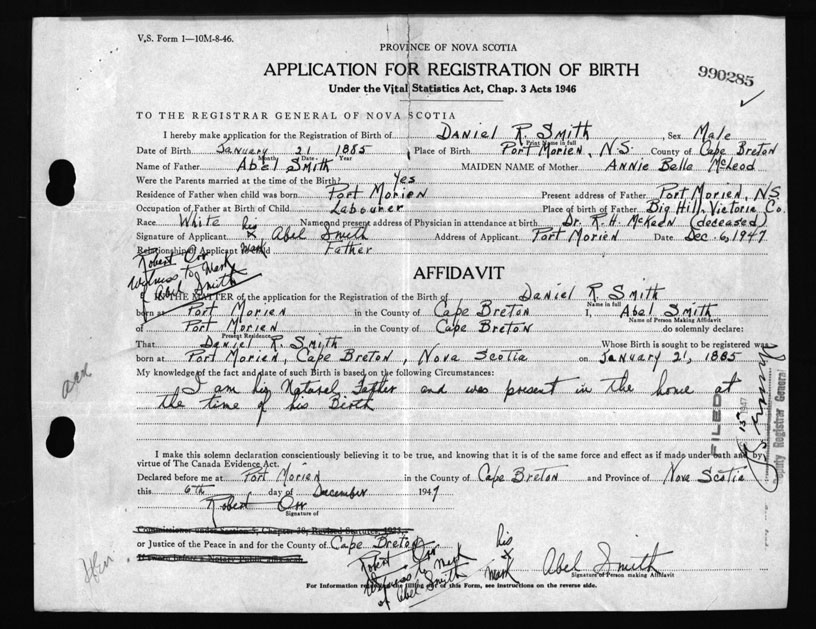 V.S. Form 1—10M-8-46.
PROVINCE OF NOVA SCOTIA
APPLICATION FOR REGISTRATION OF BIRTH
990285
Under the Vital Statistics Act, Chap. 3 Acts 1946
TO THE REGISTRAR GENERAL OF NOVA SCOTIA
I hereby make application for the Registration of Birth of Daniel R. Smith, Sex Male
Print Name in full
Date of Birth January 21 1885 Place of Birth Port Morien, N.S. County of Cape Breton
Month Date Year
Name of Father Abel Smith MAIDEN NAME of Mother Annie Belle McLeod
Were the Parents married at the time of the Birth? Yes
Residence of Father when child was born Port Morien Present address of Father Port Morien, N.S
Occupation of Father at Birth of Child Labourer Place of birth of Father Big Hill, Victoria Co.
Race White Name and present address of Physician in attendance at birth Dr. R. H. McKeen (deceased)
Signature of Applicant his x mark Abel Smith Address of Applicant Port Morien Date Dec. 6, 1947
Relationship of Applicant to Child Father
Robert Orr
Witness to Mark
of Abel Smith
AFFIDAVIT
IN THE MATTER of the application for the Registration of the Birth of Daniel R. Smith
Name in full
born at Port Morien in the County of Cape Breton I, Abel Smith
Name of Person Making Affidavit
of Port Morien in the County of Cape Breton do solemnly declare:
Present Residence
That Daniel R. Smith Whose Birth is sought to be registered was
born at Port Morien, Cape Breton, Nova Scotia on January 21, 1885
My knowledge of the fact and date of such Birth is based on the following Circumstances:
I am his Naturel Father and was present in the home at
the time of his Birth
FILED
15 1947
Deputy Registrar General
I make this solemn declaration conscientiously believing it to be true, and knowing that it is of the same force and effect as if made under oath and by
virtue of The Canada Evidence Act.
Declared before me at Port Morien in the County of Cape Breton and Province of Nova Scotia
this 6th day of December 1947
Robert Orr
Signature of
or Justice of the Peace in and for the County of Cape Breton
Robert Orr
Witness to Mark
of Abel Smith
his x mark Abel Smith
Signature of Person making Affidavit
For Information regarding the filling out of this Form, see instructions on the reverse side.